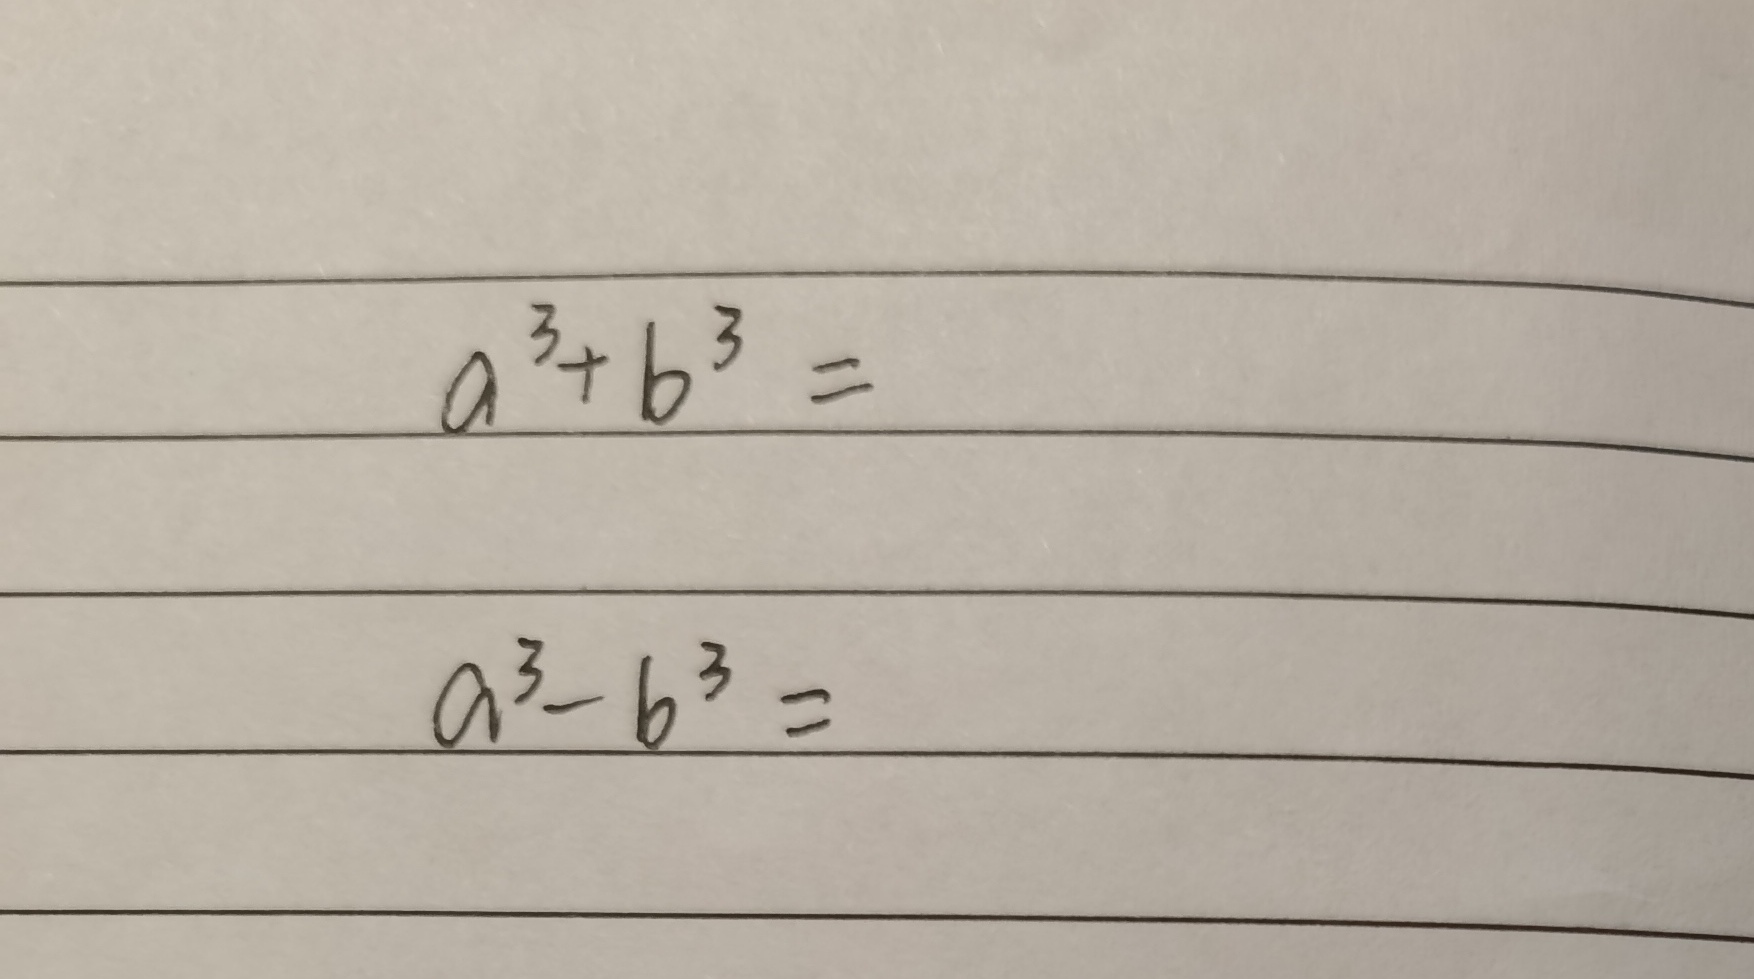 a³+b³ =
a³-b³ =